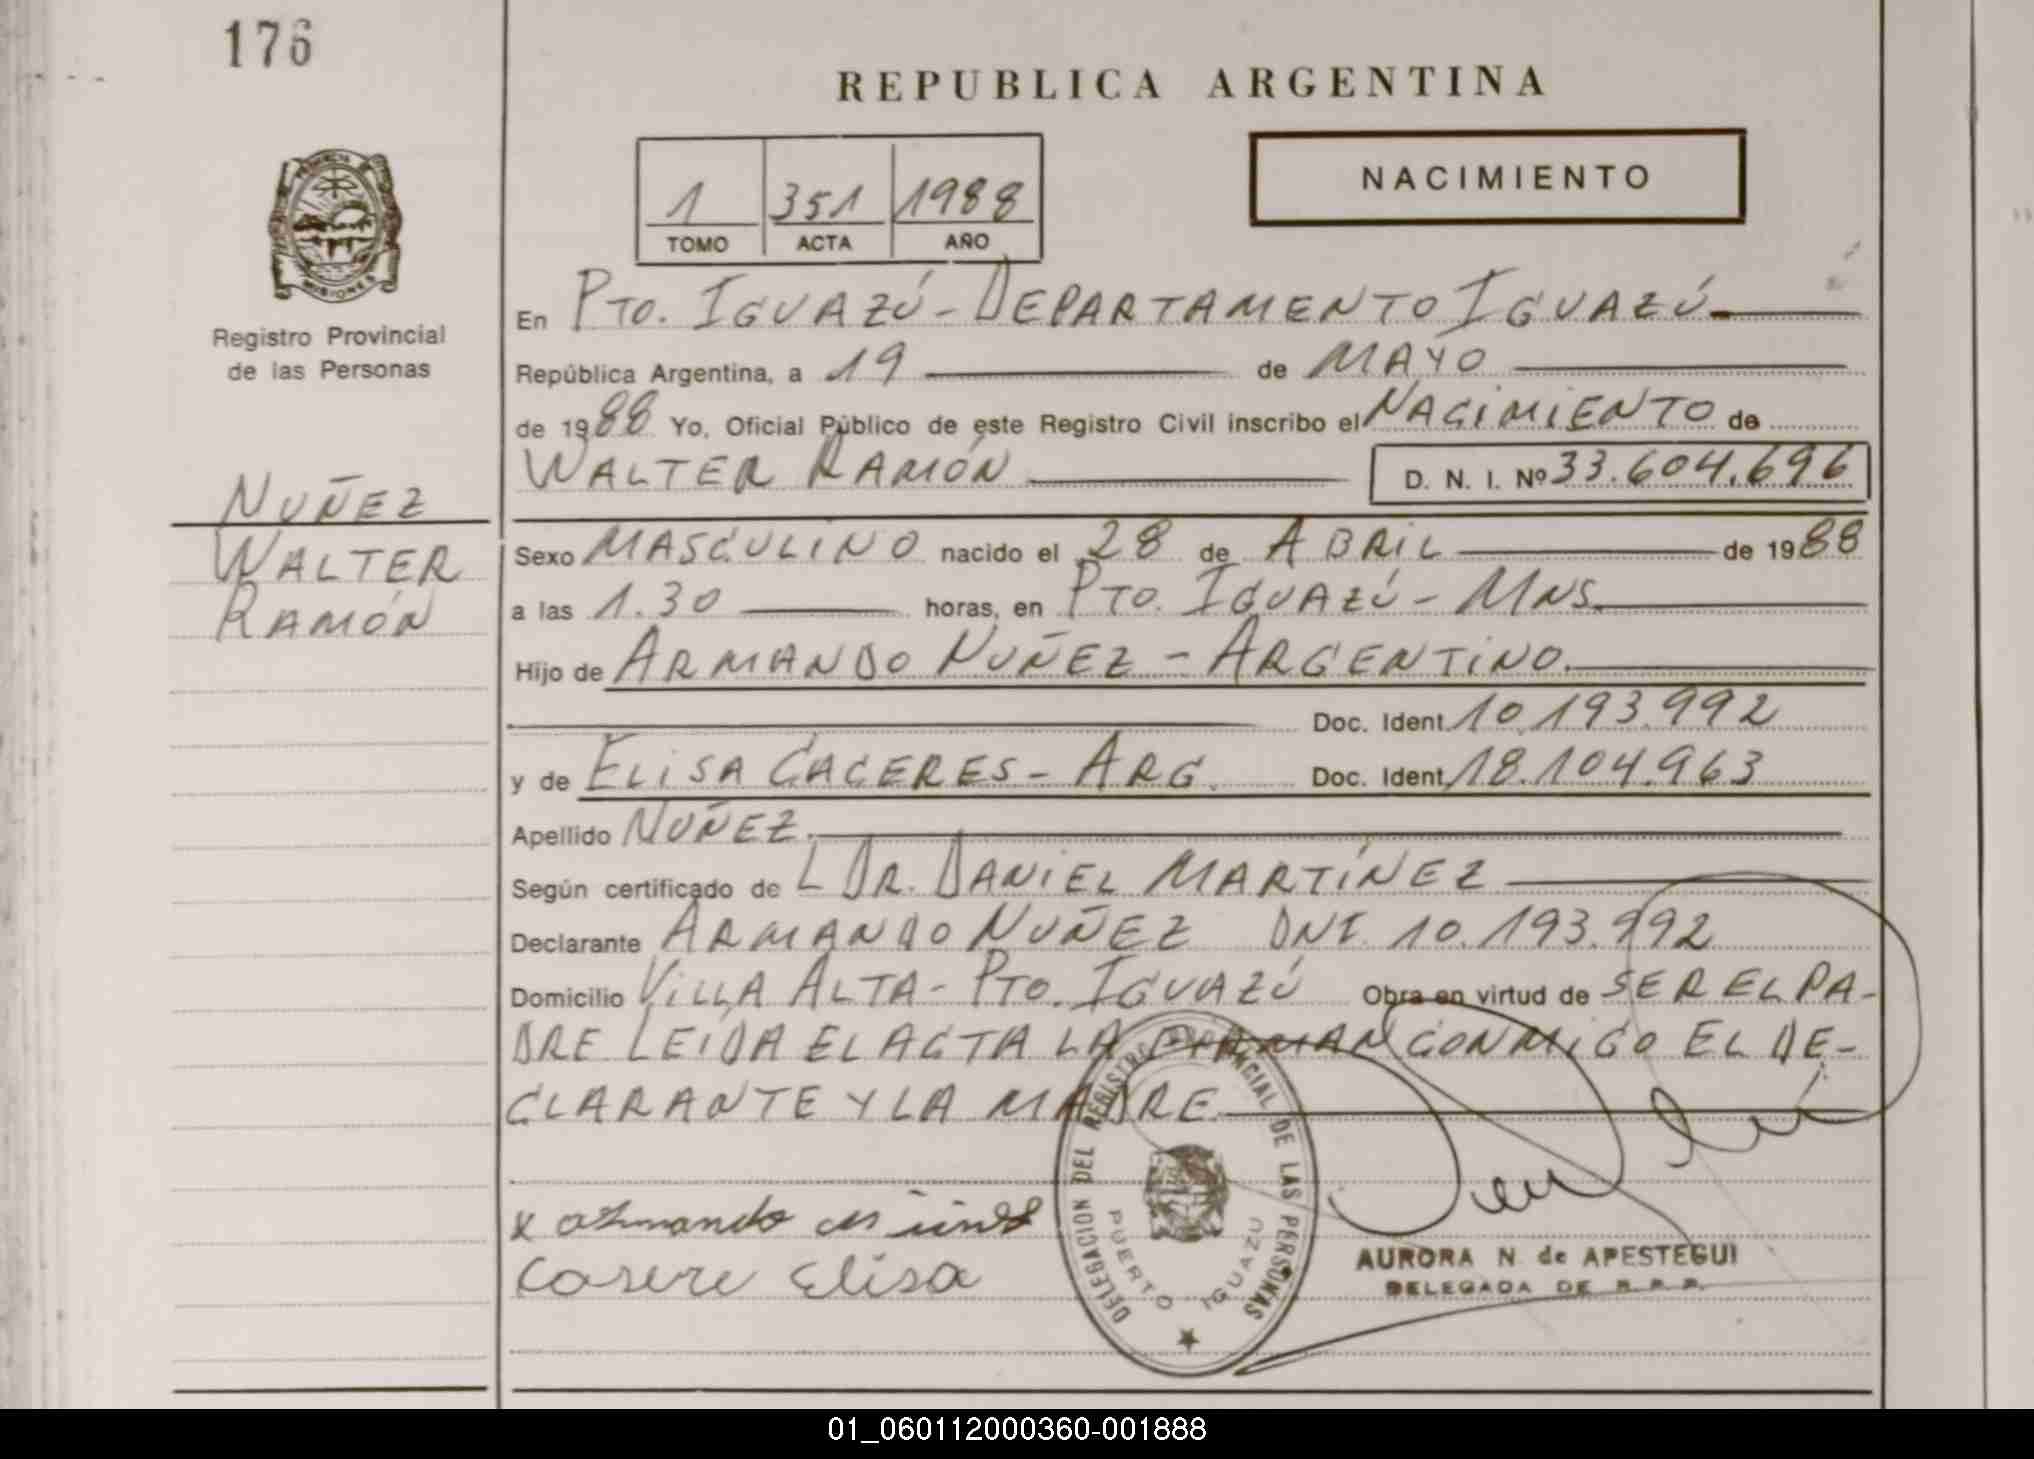 176
REPUBLICA ARGENTINA
NACIMIENTO
1 351 1988
TOMO ACTA AÑO
PROVINCIA DE
MISIONES
Registro Provincial
de las Personas
En PTO. IGUAZÚ - DEPARTAMENTO IGUAZÚ
República Argentina, a 19 de MAYO
de 1988 Yo, Oficial Público de este Registro Civil inscribo el NACIMIENTO de
WALTER RAMÓN D. N. I. Nº 33.604.696
NUÑEZ
WALTER
RAMÓN
Sexo MASCULINO nacido el 28 de ABRIL de 1988
a las 1.30 horas, en PTO. IGUAZÚ - MNS.
Hijo de ARMANDO NUÑEZ - ARGENTINO.
Doc. Ident. 10.193.992
y de ELISA CACERES - ARG. Doc. Ident. 18.104.963
Apellido NUÑEZ.
Según certificado de L DR. DANIEL MARTÍNEZ
Declarante ARMANDO NUÑEZ DNI. 10.193.992
Domicilio VILLA ALTA - PTO. IGUAZÚ Obra en virtud de SER EL PA-
DRE LEIDA EL ACTA LA FIRMAN CONMIGO EL DE-
CLARANTE Y LA MADRE.
DELEGACION DEL REGISTRO PROVINCIAL DE LAS PERSONAS
PUERTO IGUAZU
x armando
Casere Elisa
AURORA N. de APESTEGUI
DELEGADA DE R.P.P.
01_060112000360-001888